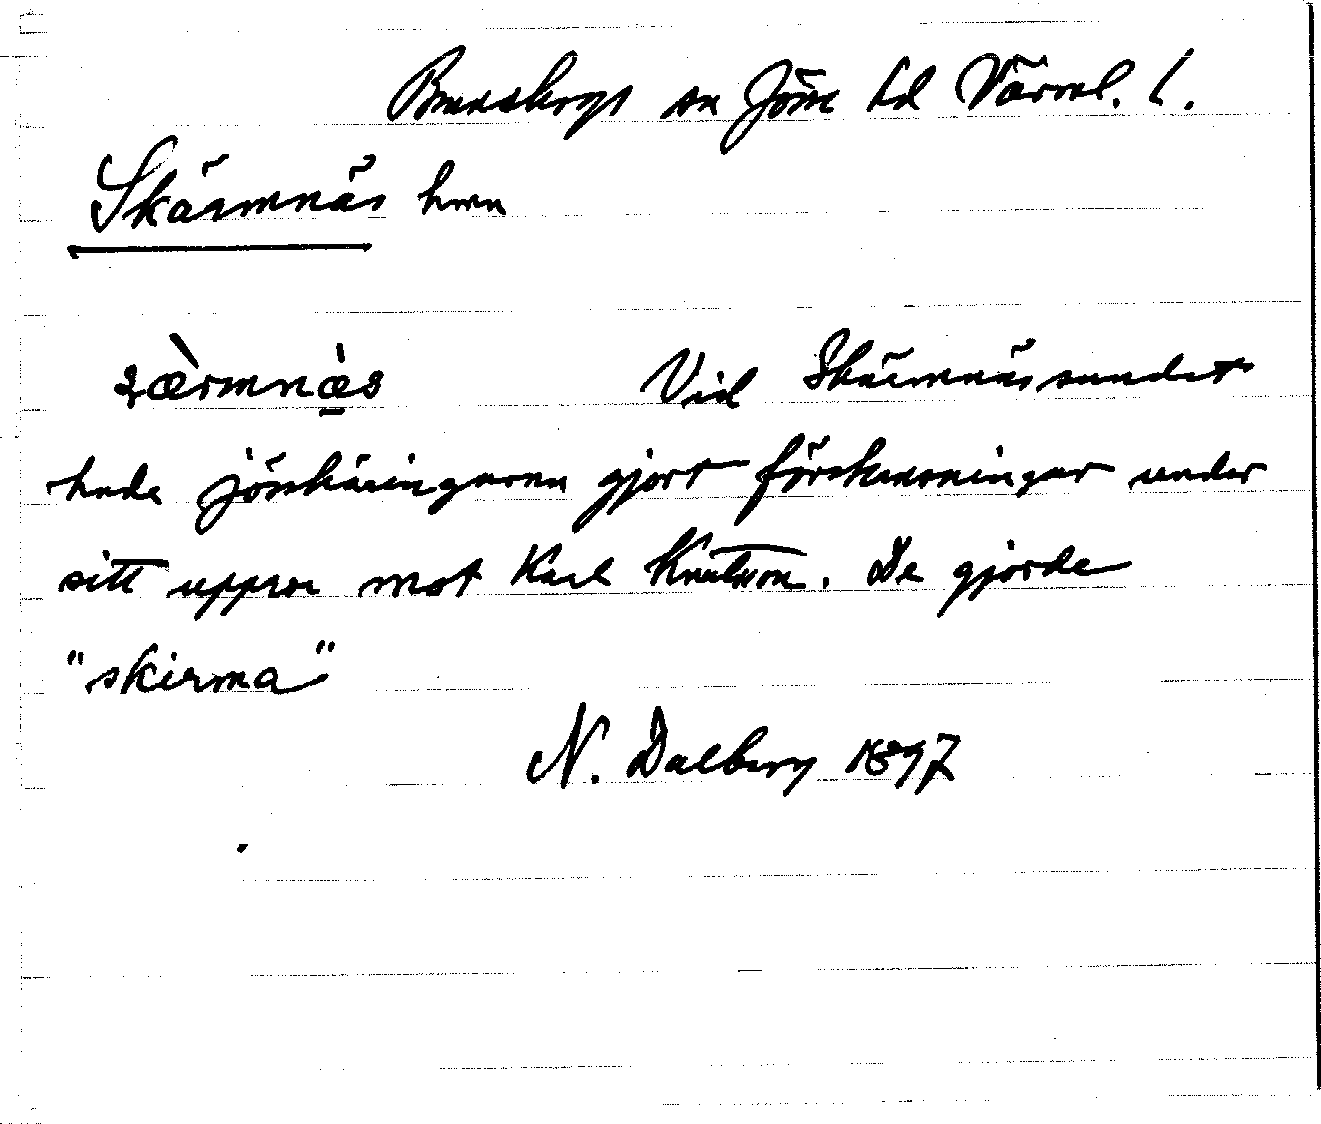 Brunskogs sn Jösse hd Värml. l.
Skärmnäs hmn
ʂæ̀rmnæ̀s Vid Skärmnäsundet
hade jösshäringarna gjort förskansningar under
sitt uppror mot Karl Knutson. De gjorde
"skirma"
N. Dalberg 1897